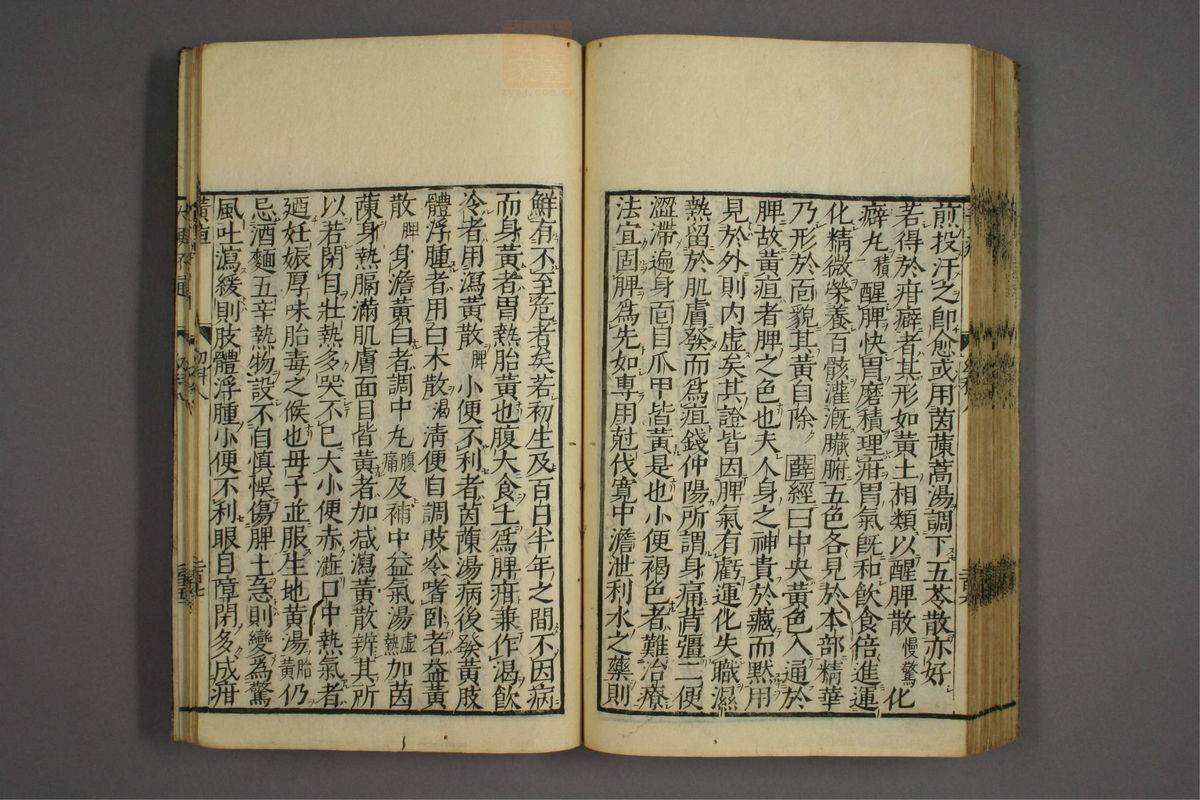 前投汗之卽愈或用茵蔯蒿湯調下五苓散亦好
若得於疳癖者其形如黃土相類以醒脾散慢驚化
癖丸積醒脾快胃磨積理疳胃氣旣和飮食倍進運
化精微榮養百骸灌漑臟腑五色各見於本部精華
乃形於面貌其黃自除薛經曰中央黃色入通於
脾故黃疸者脾之色也夫人身之神貴於藏而默用
見於外則內虛矣其證皆因脾氣有虧運化失職濕
熱留於肌膚發而爲疸錢仲陽所謂身痛背彊二便
澀滯遍身面目爪甲皆黃是也小便褐色者難治療
法宜固脾爲先如專用尅伐寬中澹泄利水之藥則
鮮有不至危者矣若初生及百日半年之間不因病
而身黃者胃熱胎黃也腹大食土爲脾疳兼作渴飮
冷者用瀉黃散脾小便不利者茵蔯湯病後發黃肢
體浮腫者用白木散渴淸便自調肢冷嗜卧者益黃
散脾身澹黃白者調中丸腹痛及補中益氣湯虛熱加茵
蔯身熱膈滿肌膚面目皆黃者加减瀉黃散辨其所
以若閉目壯熱多哭不已大小便赤澁口中熱氣者
廼妊娠厚味胎毒之候也毋子並服生地黃湯胎黃仍
忌酒麵五辛熱物設不自慎悞傷脾土急則變爲驚
風吐瀉緩則肢體浮腫小便不利眼目障閉多成疳
黃疸